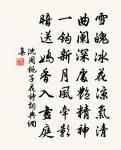 雪魄冰花涼氣清
曲闌深處艷精神
一鈎新月風牽影
暗送嬌香入畫庭
沈周梔子花詩詞典網
集